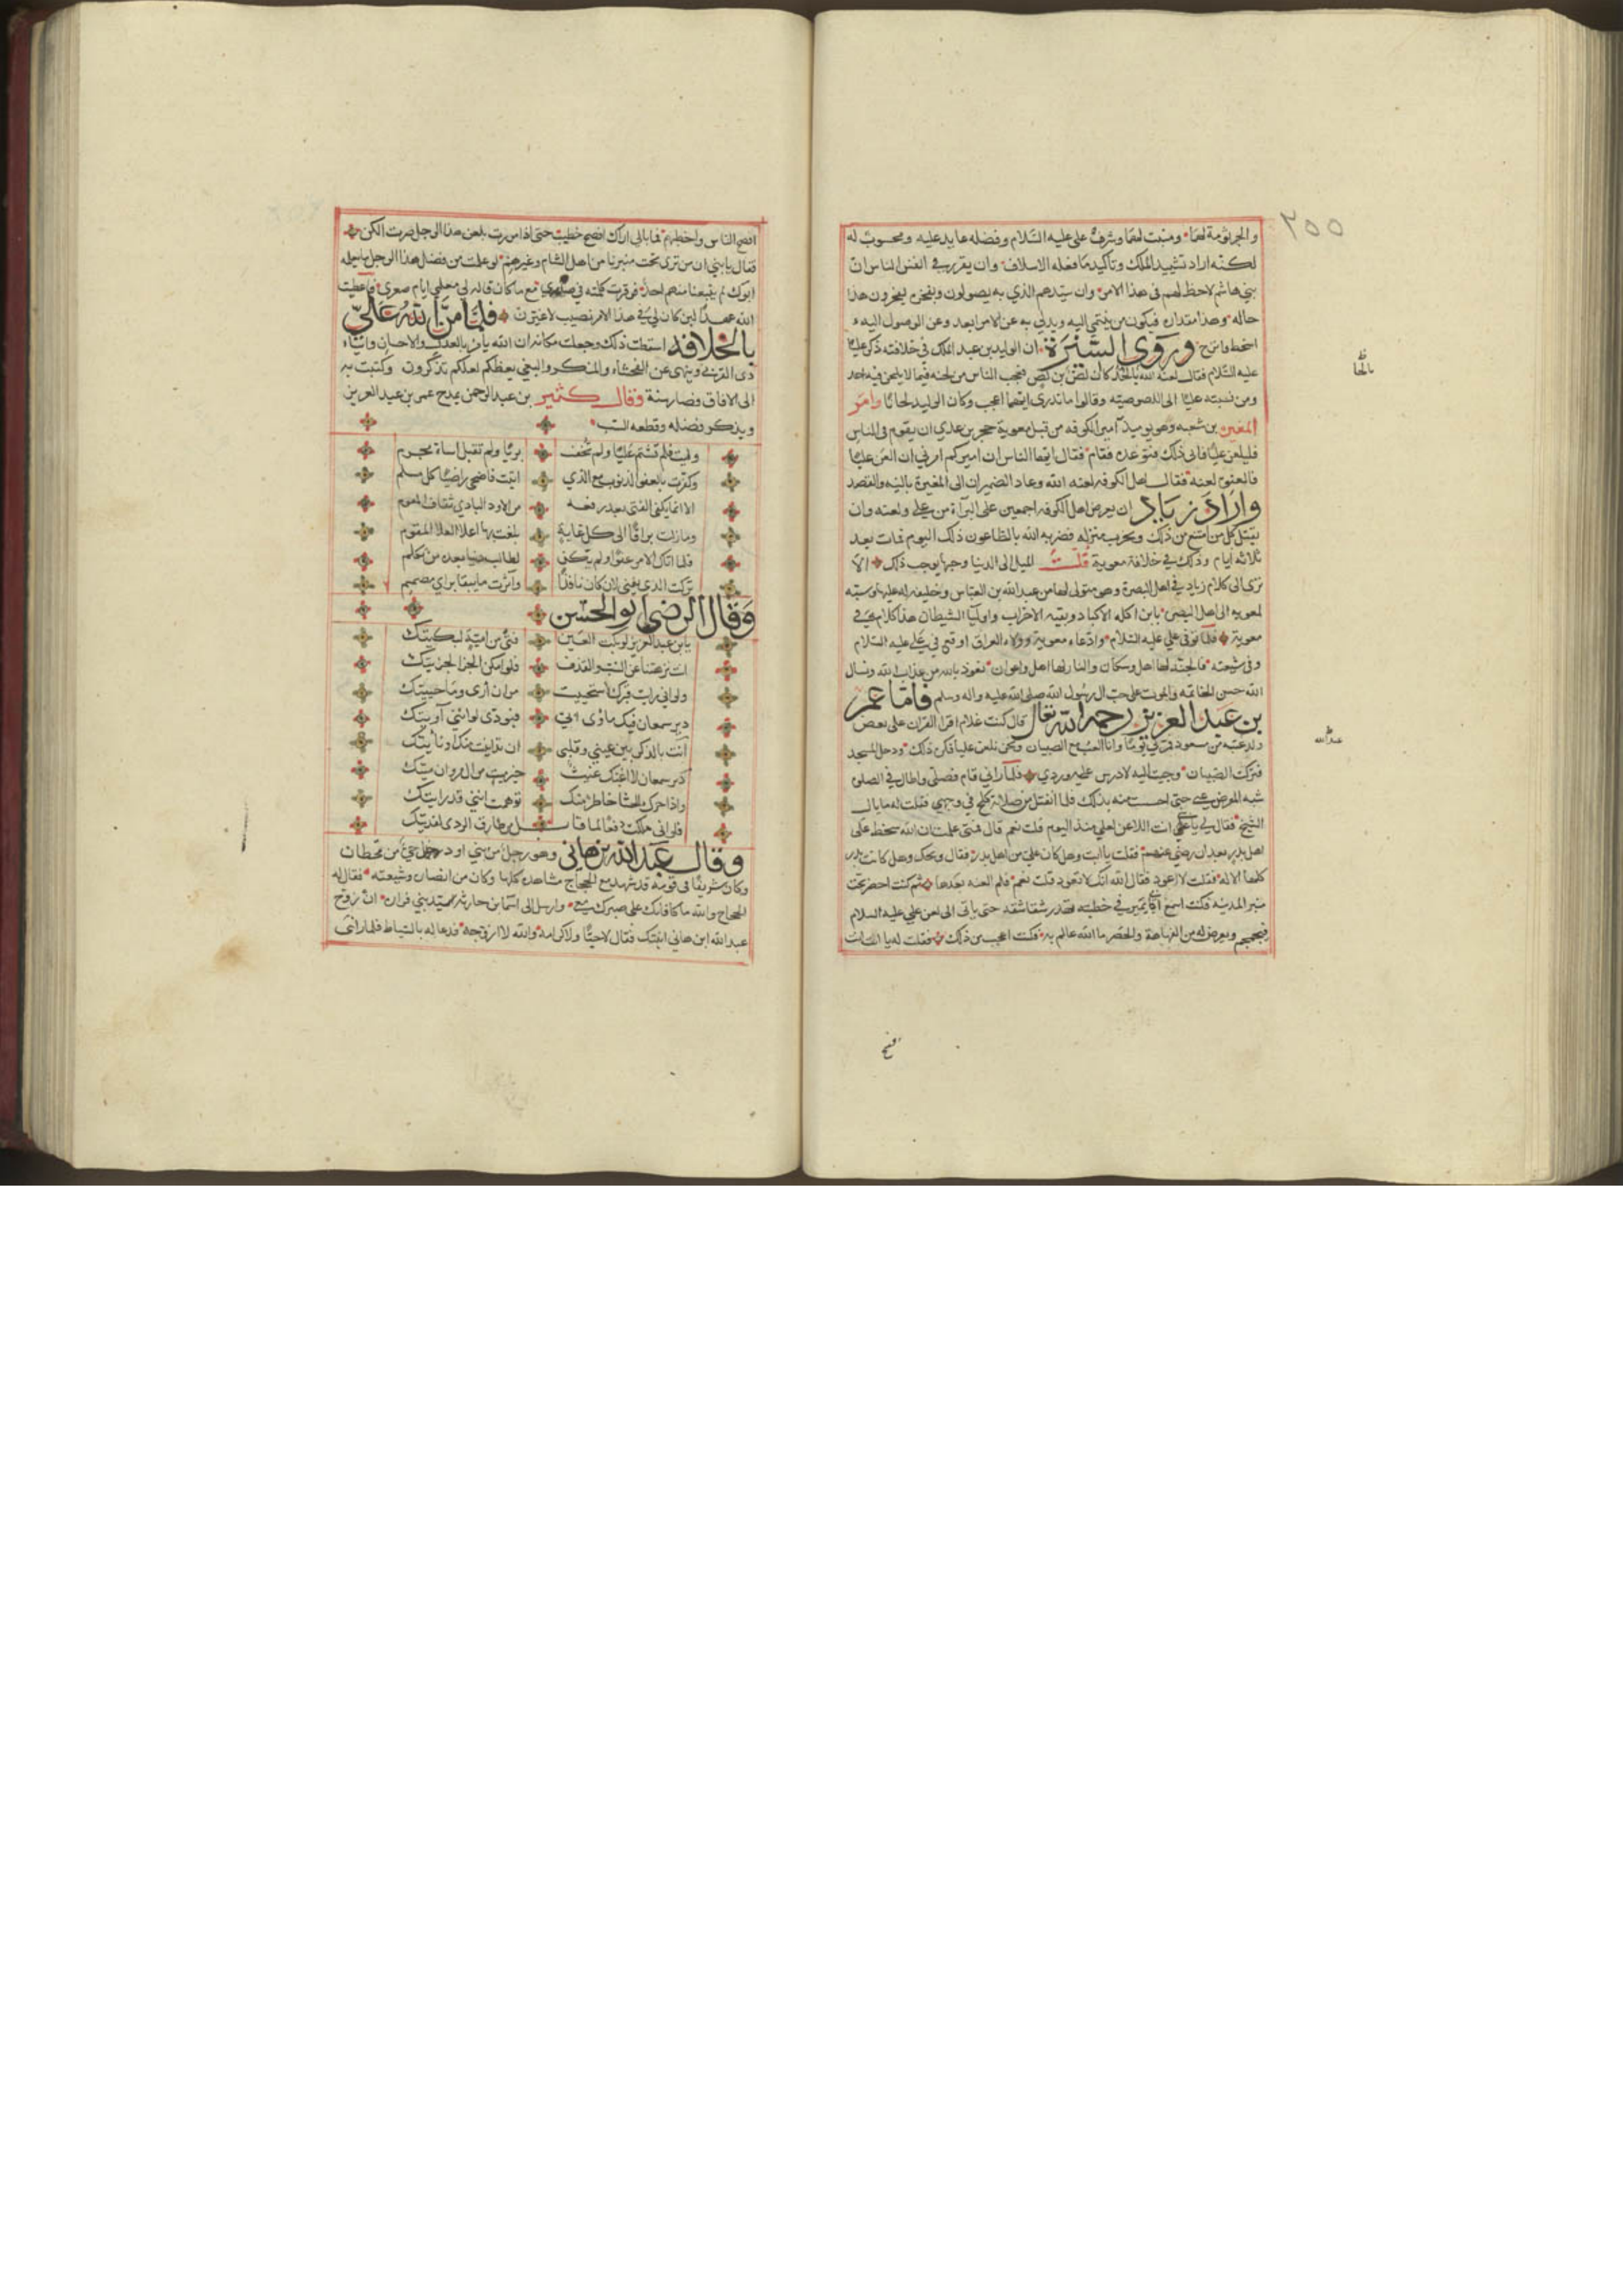 ٢٥٥
والجرثومة لها ومنبت لها وشرف علي عليه السلام وفضله عايد عليه ومحسوب له
لكنه اراد تشييد الملك وتأكيد ما فعله الاسلاف وان يقرر في انفس الناس ان
بني هاشم لاحظ لهم في هذا الامر وان سيدهم الذي به يصولون وبفخره يفخرون هذا
حاله وهذا مقداره فيكون من ينتمي اليه ويدلي به عن الامر ابعد وعن الوصول اليه
وروى السيرة ان الوليد بن عبد الملك في خلافته ذكر عليا
عليه السلام فقال لعنه الله بالجر كان لص بن لص فعجب الناس من لحنه فيما لا يلحن فيه احد
ومن نسبته عليا الى اللصوصيه وقالوا ما ندري ايهما اعجب وكان الوليد لحانا وامر
المغيرة بن شعبه وهو يوميذ امير الكوفه من قبل معوية حجر بن عدي ان يقوم في الناس
فليلعن عليا فابى ذلك فتوعده فقام فقال ايها الناس ان اميركم امرني ان العن عليا
فالعنوه لعنه الله فقال اهل الكوفه لعنه الله وعاد الضمير ان الى المغيرة بالنيه والقصد
واراد زياد ان يعرض اهل الكوفه اجمعين على البرآة من علي ولعنه وان
يقتل كل من امتنع من ذلك ويخرب منزله فضربه الله بالطاعون ذلك اليوم فمات بعد
ثلاثه ايام وذلك في خلافة معوية قلت الميل الى الدنيا وحبها يوجب ذلك الا
ترى الى كلام زياد في اهل البصرة وهو متولى لها من عبد الله بن العباس وخليفه له عليها ونسبته
لمعويه الى اهل البصرة يابن اكله الاكباد وبقيه الاحزاب واوليا الشيطان هذا كلامه في
معوية فلما توفي علي عليه السلام وادعاه معوية وولاه العراق اوقع في علي عليه السلام
وفي شيعته فالجنه لها اهل وسكان والنار لها اهل واعوان نعوذ بالله من عذاب الله ونسال
الله حسن الخاتمه والموت على حب ال رسول الله صلى الله عليه واله وسلم فاما عمر
بن عبد العزيز رحمه الله تعالى قال كنت غلام اقرا القران على بعض
ولد عتبه بن مسعود فمر بي يوما وانا العب مع الصبيان ونحن نلعن عليا فكره ذلك ودخل المسجد
فتركت الصبيان وجيت اليه لادرس عليه وردي فلما راني قام فصلى واطال في الصلوة
شبه المعرض عني حتى احسست منه بذلك فلما انفتل من صلاته كلح في وجهي فقلت له ما بال
الشيخ فقال لي يا بني انت اللاعن لعلي منذ اليوم قلت نعم قال فمتى علمت ان الله سخط على
اهل بدر بعد ان رضي عنهم فقلت يا ابت وهل كان علي من اهل بدر فقال ويحك وهل كانت بدر
كلها الا له فقلت لا اعود فقال الله انك لا تعود قلت نعم فلم العنه بعدها ثم كنت احضر تحت
منبر المدينه فكنت اسمع ابي يمر في خطبته تهدر شقاشقه حتى ياتي الى لعن علي عليه السلام
فيجمجم ويعرض له من الفهاهة والحصر ما الله عالم به فكنت اعجب من ذلك فقلت له يا ابت انت
افصح
بالخا
عبد الله
افصح الناس واخطبهم فما بالي اراك افصح خطيب حتى اذا مررت بلعن هذا الرجل صرت الكن
فقال يا بني ان من ترى تحت منبرنا من اهل الشام وغيرهم لو علمت من فضل هذا الرجل ما يعلمه
ابوك لم يتبعنا منهم احد فوقرت كلمته في صدري مع ما كان قاله لي معلمي ايام صغري فاعطيت
الله عهدا لين كان لي في هذا الامر نصيب لاغيرن فلما من الله علي
بالخلافه اسقطت ذلك وجعلت مكانه ان الله يامر بالعدل والاحسان وايتاء
ذي القربى وينهى عن الفحشاء والمنكر والبغي يعظكم لعلكم تذكرون وكتبت به
الى الافاق فصار سنة وقال كثير بن عبد الرحمن يمدح عمر بن عبد العزيز
ويذكر فضله وقطعه السب
وليت فلم تشتم عليا ولم تخف بريا ولم تقبل اساة مجرم
وكفرت بالعفو الذنوب مع الذي اتيت فاضحى راضيا كل مسلم
الا انما يكفي الفتى بعد زيغه من الاود البادي ثقاف المقوم
وما زلت براقا الى كل غاية بلغت بها اعلا العلا المقوم
فلما اتاك الامر عفوا ولم يكن لطالب دنيا بعده من تكلم
تركت الذي يفنى لان كان نافدا وآثرت ما يبقا براي مصمم
وقال الرضي ابو الحسن
يابن عبد العزيز لو بكت العين فتى من امية لبكيتك
انت نزهتنا عن السب والقذف فلو امكن الجزا لجزيتك
ولو اني رايت قبرك لاستحييت من ان ارى وما حييتك
دير سمعان فيك ماوى فبودي لو انني آويتك
انت بالذكر بين عيني وقلبي ان تدانيت منك او نأيتك
دير سمعان لا اغبك غيث خير ميت من ال مروان ميتك
واذا حرك الحشا خاطر منك توهمت انني قد رايتك
فلو اني ملكت دفعا لما نابك من طارق الردى لفديتك
وقال عبد الله بن هاني وهو رجل من بني اود حي من قحطان
وكان شريفا في قومه قد شهد مع الحجاج مشاهده كلها وكان من انصاره وشيعته فقال له
الحجاج والله ما كافاتك على صبرك معي وارسل الى اسما بن خارجه سيد بني فزاره ان زوج
عبد الله ابن هاني ابنتك فقال لا حبا ولا كرامه والله لا ازوجه فدعا له بالسياط فلما راى